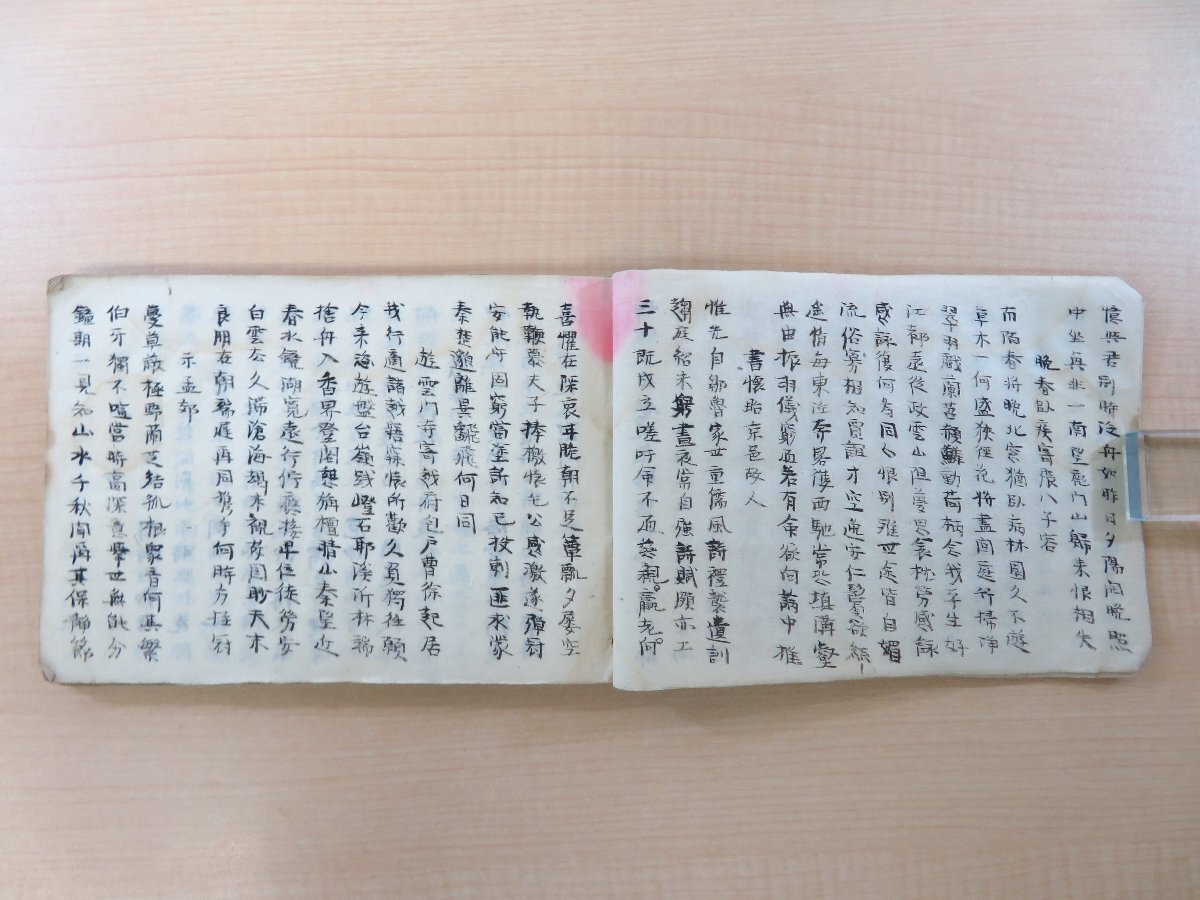 憶與君別時泛舟如昨日夕陽向晚照
中坐興非一南望鹿門山歸来恨相失
晩春臥疾寄張八子容
南陌春將晩北窓猶臥病林園久不遊
草木一何盛狹徑花將盡閒庭竹掃淨
翠羽戲蘭苕赬鱗動荷柄念我平生好
江鄉遠從政雲山阻夢思衾枕勞感詠
感詠復何為同心恨別離世途皆自媚
流俗寡相知賈誼才空逸安仁鬢欲絲
遙情每東注奔晷復西馳常恐填溝壑
無由振羽儀窮通若有命欲向論中推
書懷貽京邑故人
惟先自鄒魯家世重儒風詩禮襲遺訓
趨庭紹末窮晝夜常自強詩賦頗亦工
三十既成立嗟吁命不通慈親羸老何
喜懼在深衷甘脆朝不足簞瓢夕屢空
執鞭慕夫子捧檄懷毛公感激遂彈冠
安能守固窮當塗訴知己投刺匪求蒙
秦楚邈離異飜飛何日同
遊雲門寺寄越府包戶曹徐起居
我行適諸越夢寐懷所歡久負獨往願
今来恣遊盤台嶺踐嶝石耶溪泝林湍
捨舟入香界登閣憩旃檀晴山秦望近
春水鏡湖寬遠行佇應接卑位徒勞安
白雲去久滯滄海竭来觀故國眇天末
良朋在朝端遲爾同攜手何時方挂冠
示孟郊
蔓草蔽極野蘭芝結孤根眾音何其繁
伯牙獨不喧當時高深意舉世無能分
鍾期一見知山水千秋聞爾其保靜節